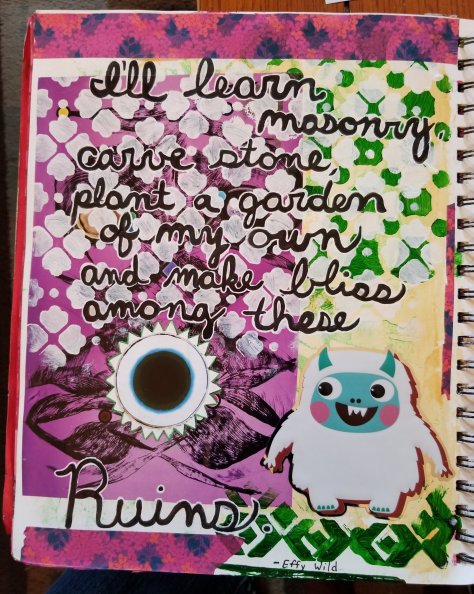 I'll learn
masonry,
carve stone,
plant a garden
of my own
and make bliss
among these
Ruins
- Effy Wild